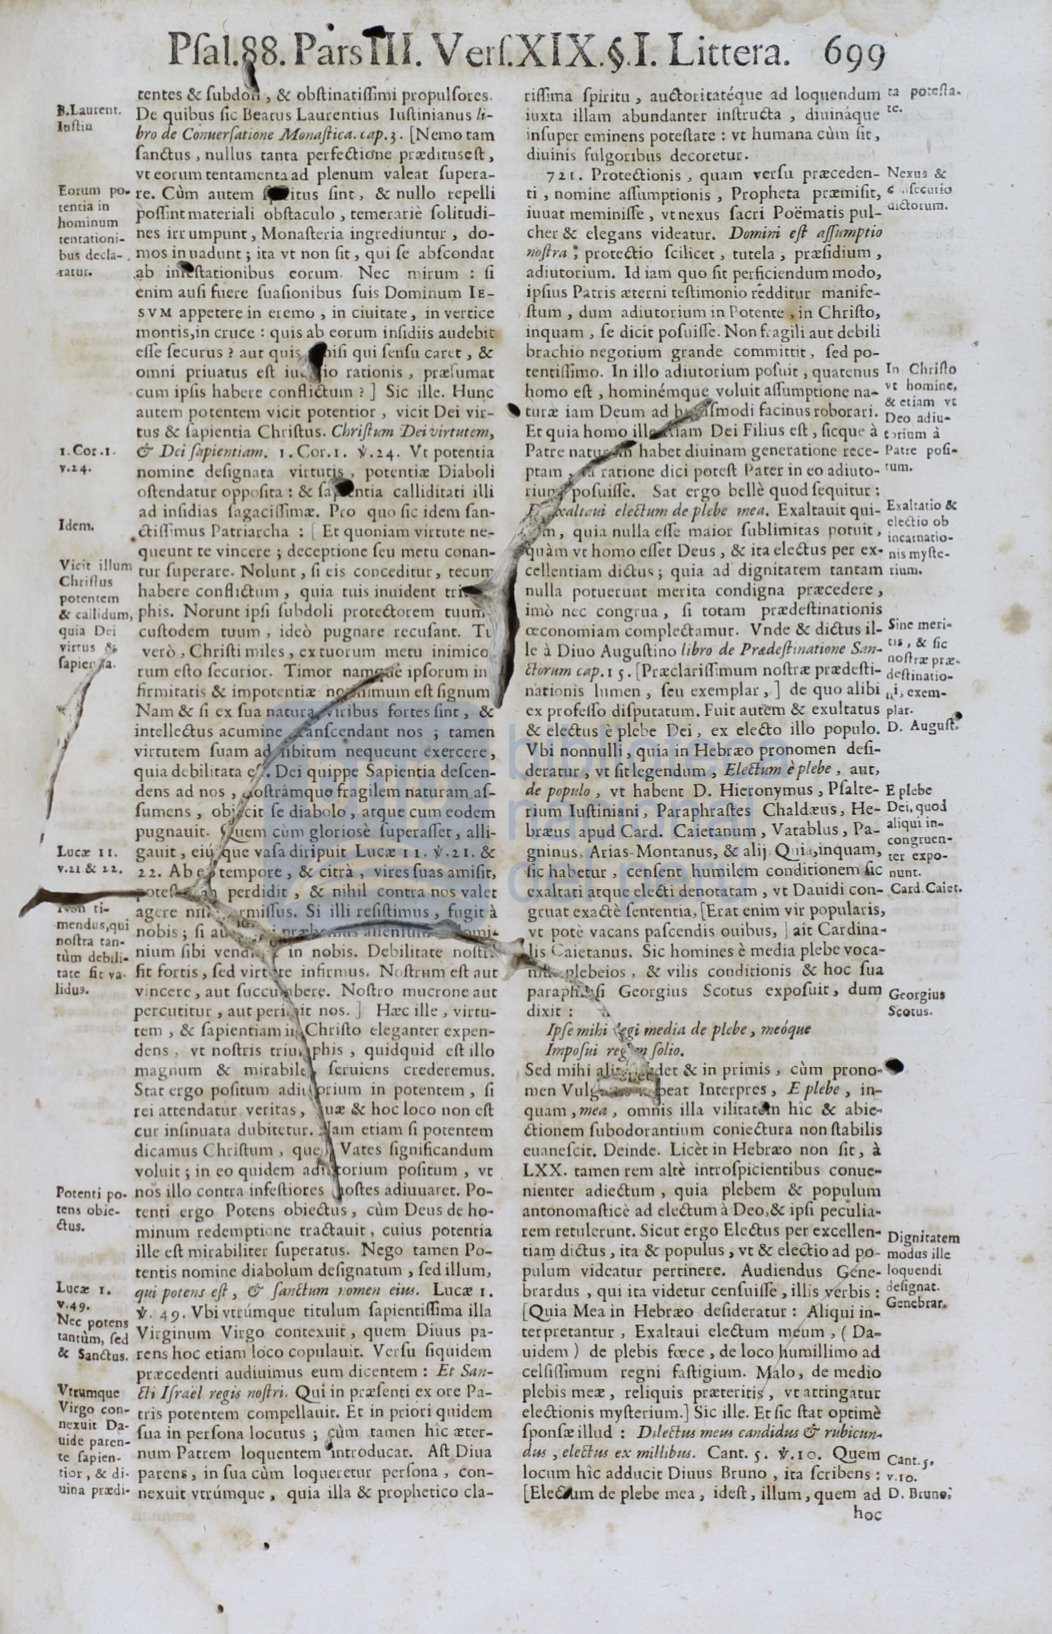 Pſal.88. Pars III. Verſ.XIX.§.I. Littera. 699
B.Laurent.
Iuſtin
Eorum po-
tentia in
hominum
tentationi-
bus decla-
ratur.
1.Cor.1.
v.24.
Idem.
Vicit illum
Chriſtus
potentem
& callidum,
quia Dei
virtus &
Lucæ 11.
v.21 & 22.
Non ti-
mendus,qui
noſtra tan-
tùm debili-
tate ſit va-
lidus.
Potenti po-
tens obie-
ctus.
Lucæ 1.
v.49.
Nec potens
tantùm, ſed
& Sanctus.
Vtrumque
Virgo con-
nexuit Da-
uide paren-
te ſapien-
tior, & di-
uina prædi-
tentes & ſubdoli, & obſtinatiſſimi propulſores.
De quibus ſic Beatus Laurentius Iuſtinianus li-
bro de Conuerſatione Monaſtica.cap.3. [Nemo tam
ſanctus, nullus tanta perfectione præditus eſt,
vt eorum tentamenta ad plenum valeat ſupera-
re. Cùm autem ſint, & nullo repelli
poſſint materiali obſtaculo, temerariè ſolitudi-
nes irrumpunt, Monaſteria ingrediuntur, do-
mos inuadunt; ita vt non ſit, qui ſe abſcondat
ab infeſtationibus eorum. Nec mirum: ſi
enim auſi fuere ſuaſionibus ſuis Dominum IE-
SVM appetere in eremo, in ciuitate, in vertice
montis,in cruce: quis ab eorum inſidiis audebit
eſſe ſecurus? aut quis niſi qui ſenſu caret, &
omni priuatus eſt rationis, præſumat
cum ipſis habere conflictum?] Sic ille. Hunc
autem potentem vicit potentior, vicit Dei vir-
tus & ſapientia Chriſtus. Chriſtum Dei virtutem,
& Dei ſapientiam. 1.Cor.1. v.24. Vt potentia
nomine deſignata virtutis, potentiæ Diaboli
oſtendatur oppoſita: & ſapientia calliditati illi
ad inſidias ſagaciſſimæ. Pro quo ſic idem ſan-
ctiſſimus Patriarcha: [Et quoniam virtute ne-
queunt te vincere; deceptione ſeu metu conan-
tur ſuperare. Nolunt, ſi eis conceditur, tecum
habere conflictum, quia tuis inuident
phis. Norunt ipſi ſubdoli protectorem tuum
cuſtodem tuum, ideò pugnare recuſant. Tu
verò, Chriſti miles, ex tuorum metu inimico
rum eſto ſecurior. Timor namque ipſorum in
firmitatis & impotentiæ non minimum eſt ſignum
Nam & ſi ex ſua natura, viribus fortes ſint, &
intellectus acumine tranſcendant nos; tamen
virtutem ſuam ad libitum nequeunt exercere,
quia debilitata eſt. Dei quippe Sapientia deſcen-
dens ad nos, noſtrámque fragilem naturam aſ-
ſumens, obiecit ſe diabolo, atque cum eodem
pugnauit. Quem cùm glorioſè ſuperaſſet, alli-
gauit, eiuſque vaſa diripuit Lucæ 11. v.21. &
22. Ab eo tempore, & citrà, vires ſuas amiſit,
perdidit, & nihil contra nos valet
agere niſi permiſſus. Si illi reſiſtimus, fugit à
nobis; ſi
nium ſibi in nobis. Debilitate noſtra
ſit fortis, ſed virtute infirmus. Noſtrum eſt aut
vincere, aut ſuccumbere. Noſtro mucrone aut
percutitur, aut perimit nos.] Hæc ille, virtu-
tem, & ſapientiam in Chriſto eleganter expen-
dens, vt noſtris triumphis, quidquid eſt illo
magnum & mirabile, ſeruiens crederemus.
Stat ergo poſitum adiutorium in potentem, ſi
rei attendatur veritas, quæ & hoc loco non eſt
cur inſinuata dubitetur. Nam etiam ſi potentem
dicamus Chriſtum, quem Vates ſignificandum
voluit; in eo quidem adiutorium poſitum, vt
nos illo contra infeſtiores hoſtes adiuuaret. Po-
tenti ergo Potens obiectus, cùm Deus de ho-
minum redemptione tractauit, cuius potentia
ille eſt mirabiliter ſuperatus. Nego tamen Po-
tentis nomine diabolum deſignatum, ſed illum,
qui potens eſt, & ſanctum nomen eius. Lucæ 1.
v. 49. Vbi vtrúmque titulum ſapientiſſima illa
Virginum Virgo contexuit, quem Diuus pa-
rens hoc etiam loco copulauit. Verſu ſiquidem
præcedenti audiuimus eum dicentem: Et San-
cti Iſraël regis noſtri. Qui in præſenti ex ore Pa-
tris potentem compellauit. Et in priori quidem
ſua in perſona locutus; cùm tamen hîc æter-
num Patrem loquentem introducat. Aſt Diua
parens, in ſua cùm loqueretur perſona, con-
nexuit vtrúmque, quia illa & prophetico cla-
riſſima ſpiritu, auctoritatéque ad loquendum
iuxta illam abundanter inſtructa, diuináque
inſuper eminens poteſtate: vt humana cùm ſit,
diuinis fulgoribus decoretur.
721. Protectionis, quam verſu præceden-
ti, nomine aſſumptionis, Propheta præmiſit,
iuuat meminiſſe, vt nexus ſacri Poëmatis pul-
cher & elegans videatur. Domini eſt aſſumptio
noſtra; protectio ſcilicet, tutela, præſidium,
adiutorium. Id iam quo ſit perficiendum modo,
ipſius Patris æterni teſtimonio redditur manife-
ſtum, dum adiutorium in Potente, in Chriſto,
inquam, ſe dicit poſuiſſe. Non fragili aut debili
brachio negotium grande committit, ſed po-
tentiſſimo. In illo adiutorium poſuit, quatenus
homo eſt, hominémque voluit aſſumptione na-
turæ iam Deum ad huiuſmodi facinus roborari.
Et quia homo ille etiam Dei Filius eſt, ſicque à
Patre naturam habet diuinam generatione rece-
ptam, ea ratione dici poteſt Pater in eo adiuto-
rium poſuiſſe. Sat ergo bellè quod ſequitur:
Et exaltaui electum de plebe mea. Exaltauit qui-
dem, quia nulla eſſe maior ſublimitas potuit,
quàm vt homo eſſet Deus, & ita electus per ex-
cellentiam dictus; quia ad dignitatem tantam
nulla potuerunt merita condigna præcedere,
imò nec congrua, ſi totam prædeſtinationis
œconomiam complectamur. Vnde & dictus il-
le à Diuo Auguſtino libro de Prædeſtinatione San-
ctorum cap.15. [Præclariſſimum noſtræ prædeſti-
nationis lumen, ſeu exemplar,] de quo alibi
ex profeſſo diſputatum. Fuit autem & exultatus
& electus è plebe Dei, ex electo illo populo.
Vbi nonnulli, quia in Hebræo pronomen deſi-
deratur, vt ſit legendum, Electum è plebe, aut,
de populo, vt habent D. Hieronymus, Pſalte-
rium Iuſtiniani, Paraphraſtes Chaldæus, He-
bræus apud Card. Caietanum, Vatablus, Pa-
gninus, Arias-Montanus, & alij. Quia,inquam,
ſic habetur, cenſent humilem conditionem ſic
exaltati atque electi denotatam, vt Dauidi con-
gruat exactè ſententia, [Erat enim vir popularis,
vt potè vacans paſcendis ouibus,] ait Cardina-
lis Caietanus. Sic homines è media plebe voca-
mus plebeios, & vilis conditionis & hoc ſua
paraphraſi Georgius Scotus expoſuit, dum
dixit:
Ipſe mihi legi media de plebe, meóque
Impoſui regem ſolio.
Sed mihi & in primis, cùm prono-
men Vulgatus habeat Interpres, E plebe, in-
quam, mea, omnis illa vilitatem hîc & abie-
ctionem ſubodorantium coniectura non ſtabilis
euaneſcit. Deinde. Licèt in Hebræo non ſit, à
LXX. tamen rem altè introſpicientibus conue-
nienter adiectum, quia plebem & populum
antonomaſticè ad electum à Deo,& ipſi peculia-
rem retulerunt. Sicut ergo Electus per excellen-
tiam dictus, ita & populus, vt & electio ad po-
pulum videatur pertinere. Audiendus Gene-
brardus, qui ita videtur cenſuiſſe, illis verbis:
[Quia Mea in Hebræo deſideratur: Aliqui in-
terpretantur, Exaltaui electum meum, (Da-
uidem) de plebis fœce, de loco humillimo ad
celſiſſimum regni faſtigium. Malo, de medio
plebis meæ, reliquis præteritis, vt attingatur
electionis myſterium.] Sic ille. Et ſic ſtat optimè
ſponſæ illud: Dilectus meus candidus & rubicun-
dus, electus ex millibus. Cant. 5. v.10. Quem
locum hîc adducit Diuus Bruno, ita ſcribens:
[Electum de plebe mea, ideſt, illum, quem ad
hoc
ta poteſta-
te.
Nexus &
dictorum.
In Chriſto
vt homine,
& etiam vt
Deo adiu-
torium à
Patre poſi-
tum.
Exaltatio &
electio ob
incarnatio-
nis myſte-
rium.
Sine meri-
tis, & ſic
noſtræ præ-
deſtinatio-
nis exem-
plar.
D. Auguſt.
E plebe
Dei, quod
aliqui in-
congruen-
ter expo-
nunt.
Card.Caiet.
Georgius
Scotus.
Dignitatem
modus ille
loquendi
deſignat.
Genebrar.
Cant.5.
v.10.
D. Bruno.
biblioteca
nacional
del perú